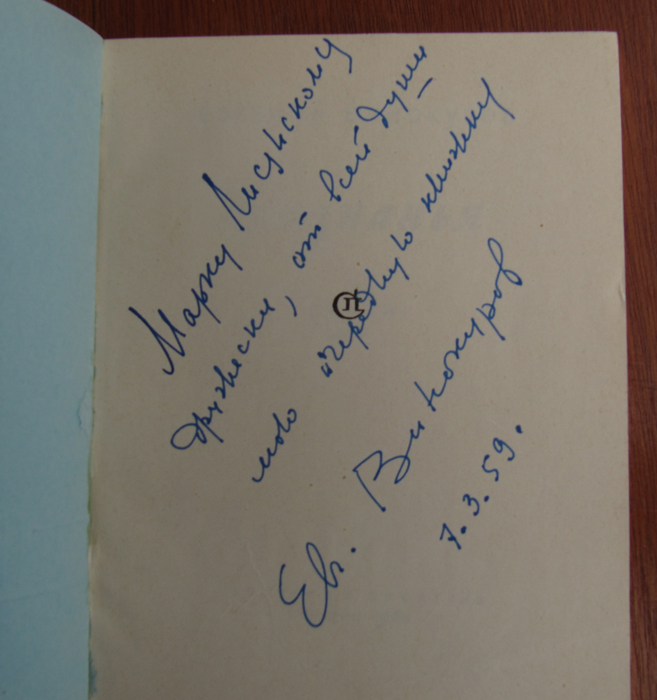 Марку Лисянскому
дружески, от всей души
мою очередную книжку
Ев. Винокуров
7.3.59.
СП